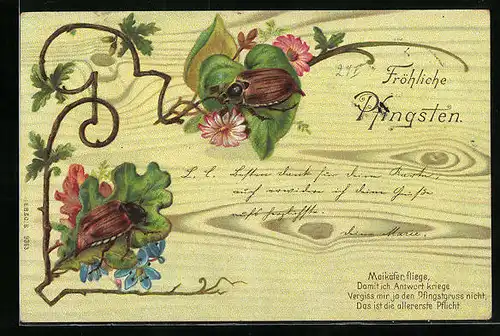 Fröhliche
Pfingsten.
Besten Dank für Deine Karte,
auch erwidere ich Deine Grüße
Deine Marie.
Maikäfer, fliege,
Damit ich Antwort kriege
Vergiss mir ja den Pfingstgruss nicht,
Das ist die allererste Pflicht.